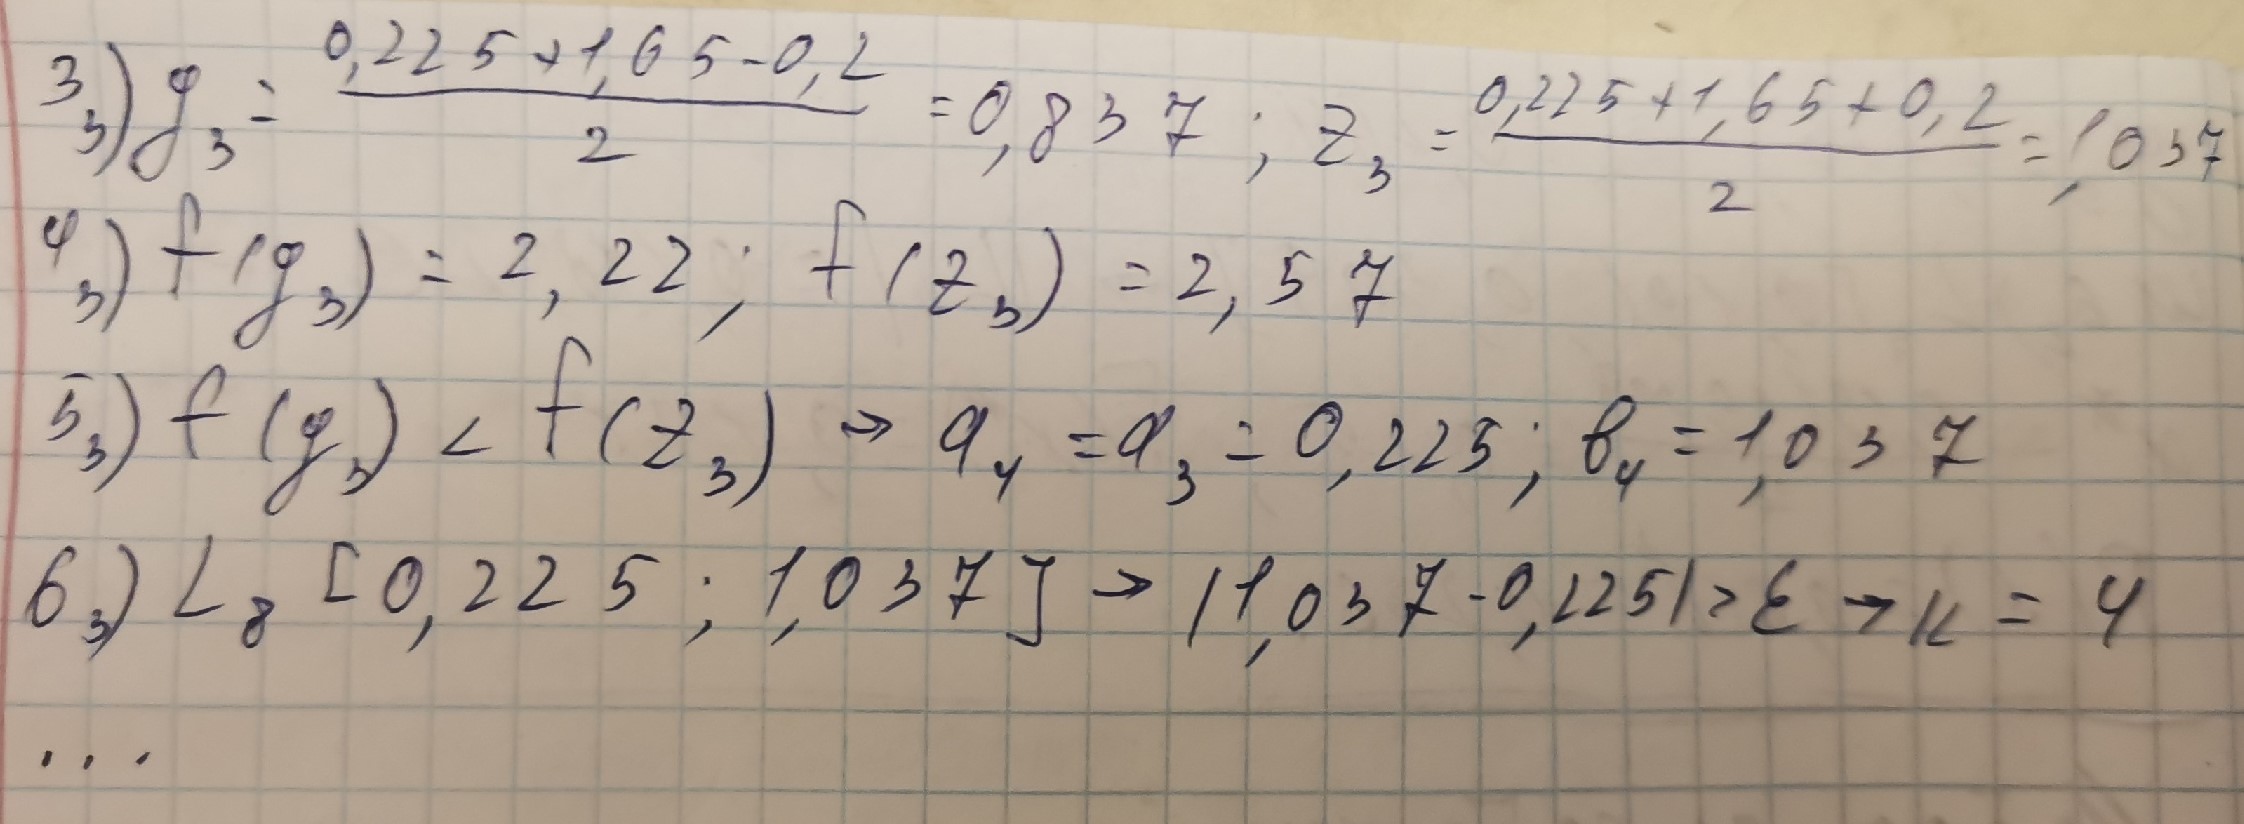 3₃) y₃ = (0,225+1,65-0,2)/2 = 0,837; z₃ = (0,225+1,65+0,2)/2 = 1,037
4₃) f(y₃) = 2,22; f(z₃) = 2,57
5₃) f(y₃) < f(z₃) → a₄ = a₃ = 0,225; b₄ = 1,037
6₃) L₈ [0,225; 1,037] → |1,037-0,225| > ε → к = 4
...